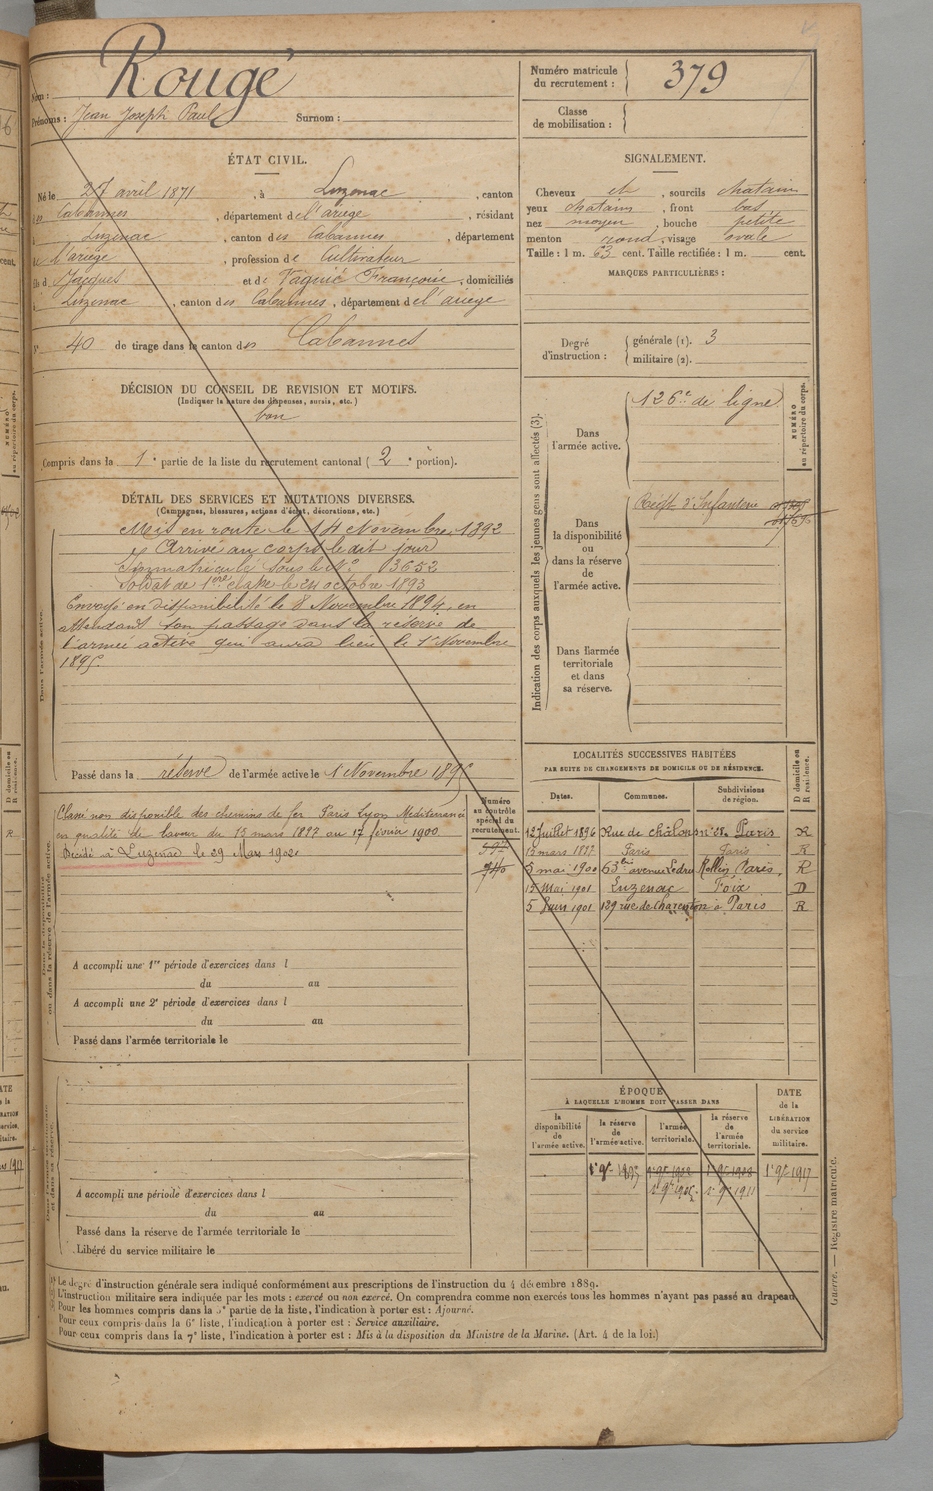 Rougé
Nom :
Prénoms : Jean Joseph Paul Surnom :
Numéro matricule du recrutement : 379
Classe de mobilisation :
ÉTAT CIVIL.
Né le 27 avril 1871, à Luzenac, canton
des Cabannes, département de l'ariège, résidant
à Luzenac, canton des Cabannes, département
de l'ariège, profession de Cultivateur
fils de Jacques et de Françoise, domiciliés
à Luzenac, canton des Cabannes, département de l'ariège
N° 40 de tirage dans le canton des Cabannes
SIGNALEMENT.
Cheveux et, sourcils chatain
yeux chatains, front bas
nez moyen, bouche petite
menton rond, visage ovale
Taille : 1 m. 63 cent. Taille rectifiée : 1 m. cent.
MARQUES PARTICULIÈRES :
Degré d'instruction : générale (1). 3
militaire (2).
DÉCISION DU CONSEIL DE REVISION ET MOTIFS.
(Indiquer la nature des dispenses, sursis, etc.)
bon
Compris dans la 1e partie de la liste du recrutement cantonal (2e portion).
DÉTAIL DES SERVICES ET MUTATIONS DIVERSES.
(Campagnes, blessures, actions d'éclat, décorations, etc.)
Mis en route le 14 Novembre 1892
Arrivé au corps le dit jour
Immatriculé sous le N° 3652
Soldat de 1ere classe le 24 octobre 1893
Envoyé en disponibilité le 8 Novembre 1894, en
attendant son passage dans la réserve de
l'armée active qui aura lieu le 1er Novembre
1895.
Dans l'armée active.
Passé dans la réserve de l'armée active le 1 Novembre 1895
Indication des corps auxquels les jeunes gens sont affectés (3).
NUMÉRO au répertoire du corps.
Dans l'armée active.
126e de ligne
Dans la disponibilité ou dans la réserve de l'armée active.
Régt d'Infanterie
Dans l'armée territoriale et dans sa réserve.
Numéro au contrôle spécial du recrutement.
597
740
Classé non disponible des chemins de fer Paris Lyon Méditerranée
en qualité de laveur du 15 mars 1897 au 17 février 1900
Décédé à Luzenac le 29 Mars 1902
Dans la disponibilité ou dans la réserve de l'armée active.
A accompli une 1re période d'exercices dans l
du au
A accompli une 2e période d'exercices dans l
du au
Passé dans l'armée territoriale le
LOCALITÉS SUCCESSIVES HABITÉES
PAR SUITE DE CHANGEMENTS DE DOMICILE OU DE RÉSIDENCE.
D domicile ou R résidence.
Dates. Communes. Subdivisions de région.
12 Juillet 1896 Rue de châlons n° 28 Paris R
15 mars 1897 Paris Paris R
5 mai 1900 63bis avenue Ledru Rollin Paris R
15 Mai 1901 Luzenac Foix D
5 Juin 1901 189 rue de Charenton à Paris R
ÉPOQUE
À LAQUELLE L'HOMME DOIT PASSER DANS
DATE de la LIBÉRATION du service militaire.
la disponibilité de l'armée active.
la réserve de l'armée active.
l'armée territoriale.
la réserve de l'armée territoriale.
1er 9bre 1895 1er 9bre 1908 1er 9bre 1917
1er 9bre 1905 1er 9bre 1911
A accompli une période d'exercices dans l
du au
Passé dans la réserve de l'armée territoriale le
Libéré du service militaire le
Le degré d'instruction générale sera indiqué conformément aux prescriptions de l'instruction du 4 décembre 1889.
L'instruction militaire sera indiquée par les mots : exercé ou non exercé. On comprendra comme non exercés tous les hommes n'ayant pas passé au drapeau.
Pour les hommes compris dans la 5e partie de la liste, l'indication à porter est : Ajourné.
Pour ceux compris dans la 6e liste, l'indication à porter est : Service auxiliaire.
Pour ceux compris dans la 7e liste, l'indication à porter est : Mis à la disposition du Ministre de la Marine. (Art. 4 de la loi.)
Guerre. — Registre matricule.